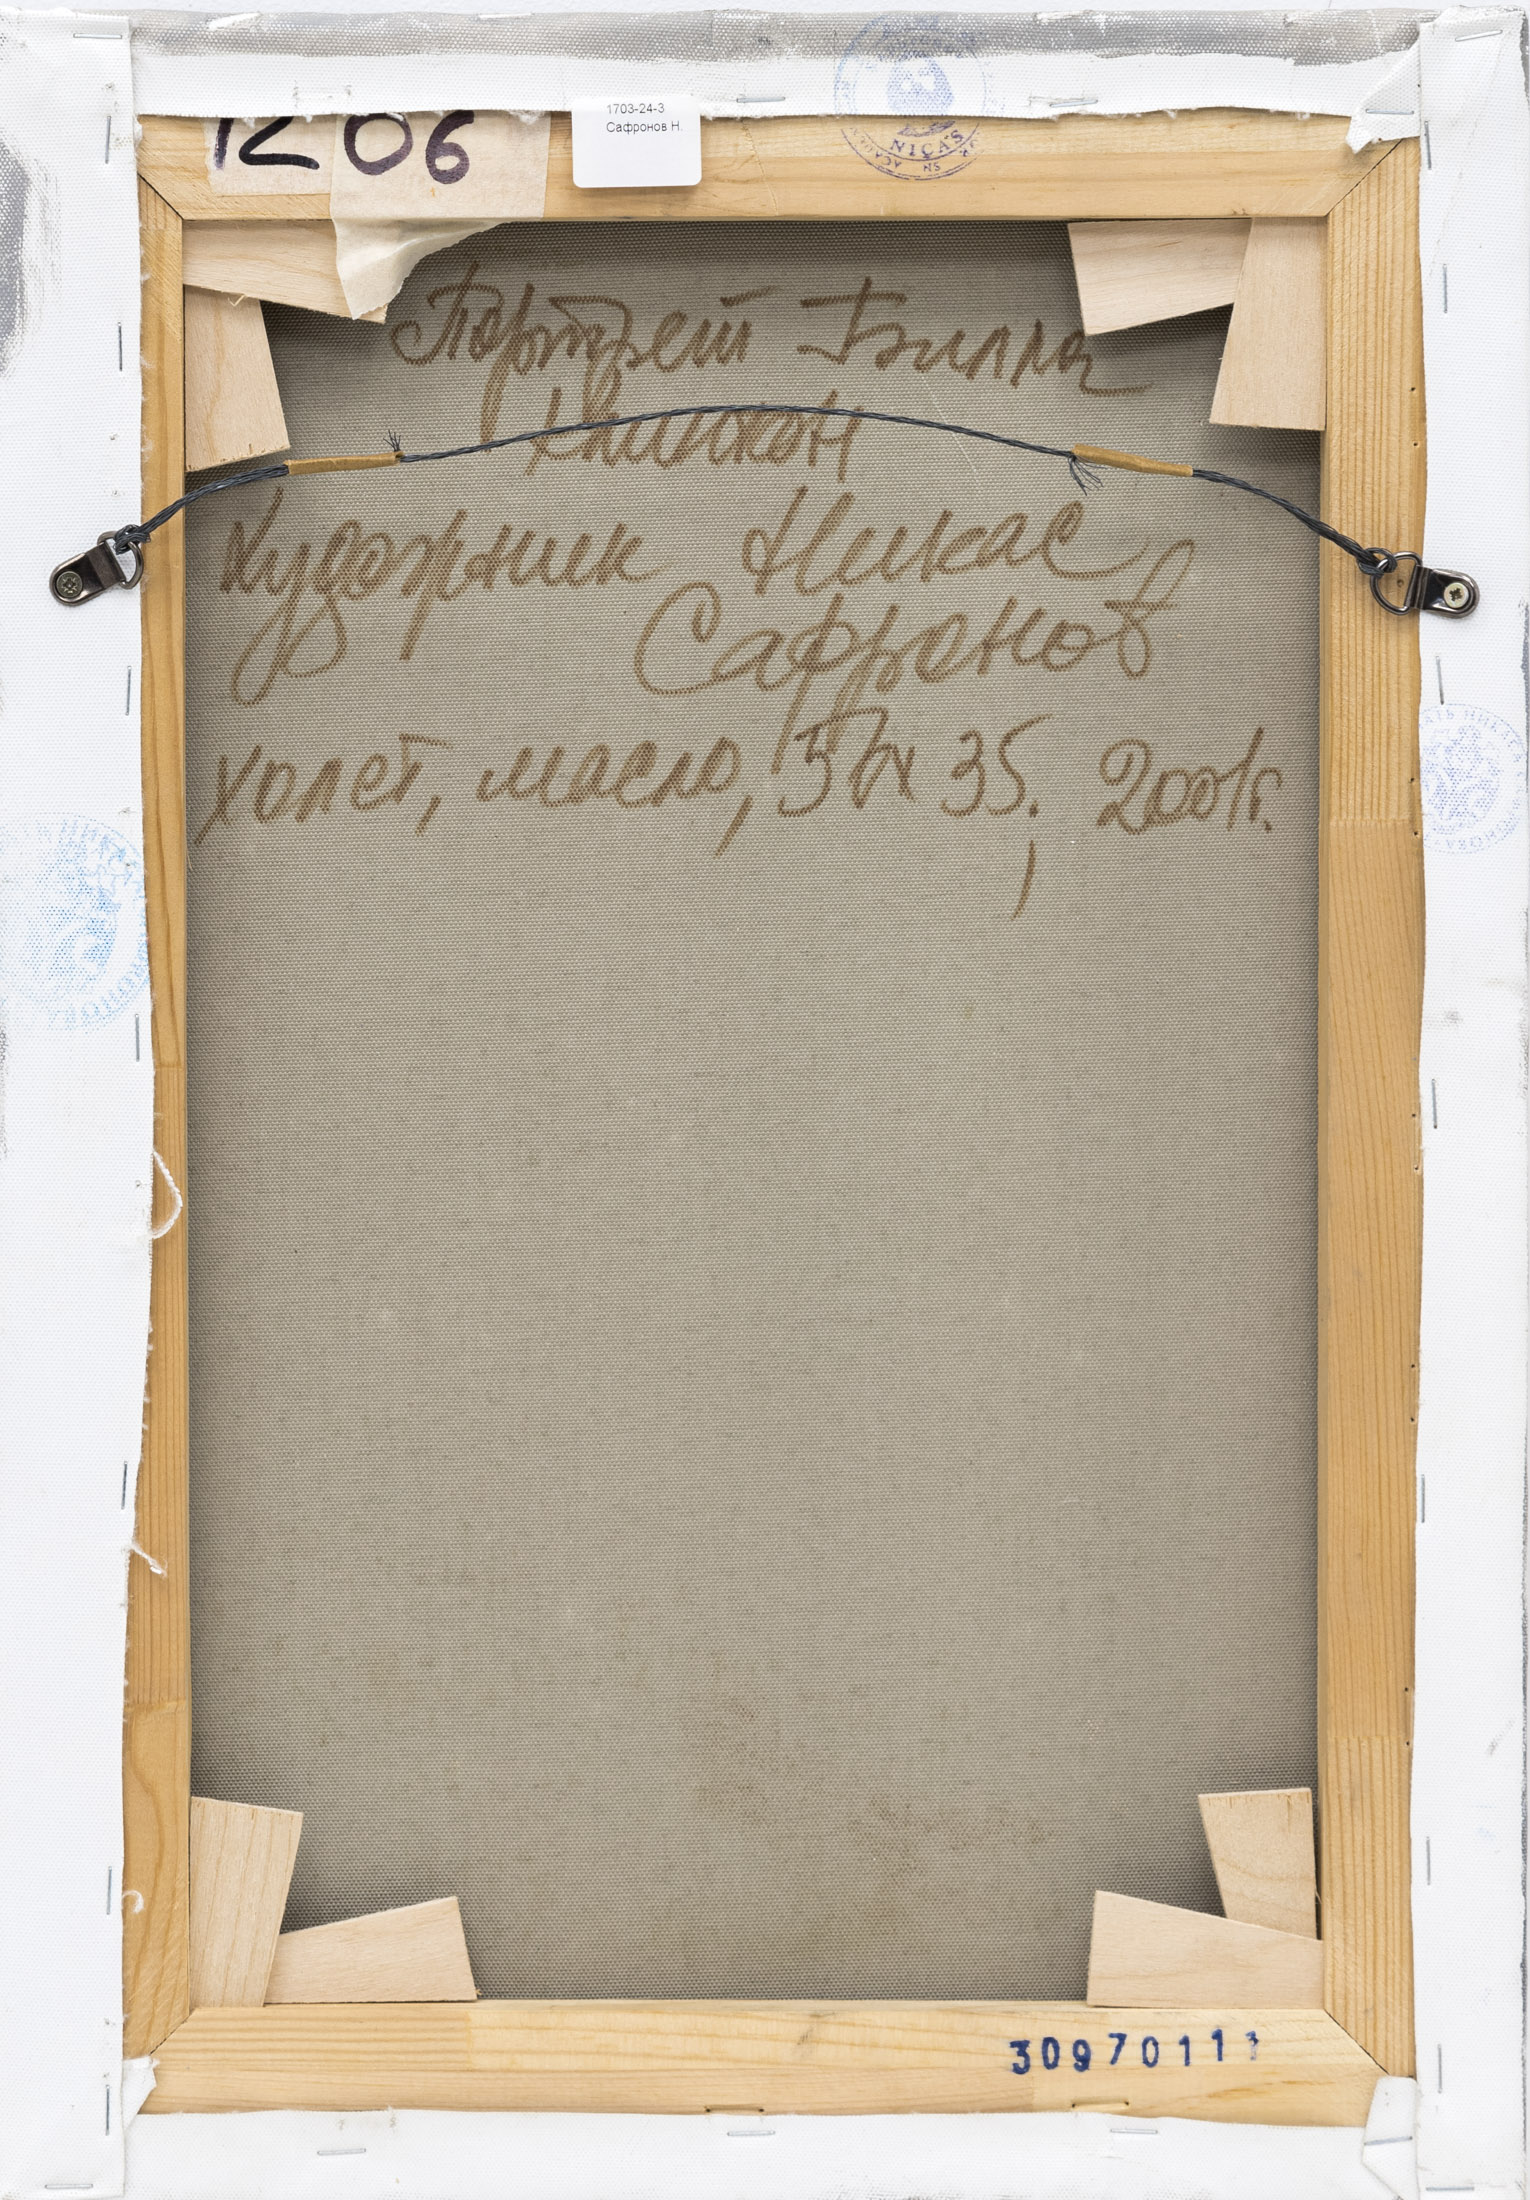 1206
1703-24-3
Сафронов Н.
NICAS
SN
Портрет Билла
Клинтон
Художник Никас
Сафронов
холст, масло, 35, 2001г.
30970111